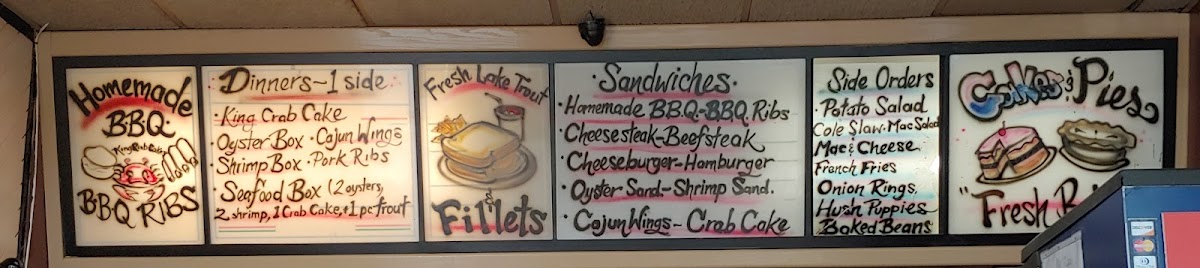 Homemade
BBQ
King Crab Cakes
BBQ RIBS
Dinners~1 side
·King Crab Cake
Oyster Box · Cajun Wings
Shrimp Box · Pork Ribs
·Seafood Box (2 oysters,
2 shrimp, 1 Crab Cake, + 1 pc trout
Fresh Lake Trout
&
Fillets
·Sandwiches·
·Homemade BBQ~BBQ Ribs
·Cheesesteak-Beefsteak
·Cheeseburger-Hamburger
·Oyster Sand~Shrimp Sand.
·Cajun Wings~ Crab Cake
Side Orders
·Potato Salad
Cole Slaw·Mac Salad
Mac & Cheese
French Fries
Onion Rings
Hush Puppies
Baked Beans
Cakes & Pies
"Fresh